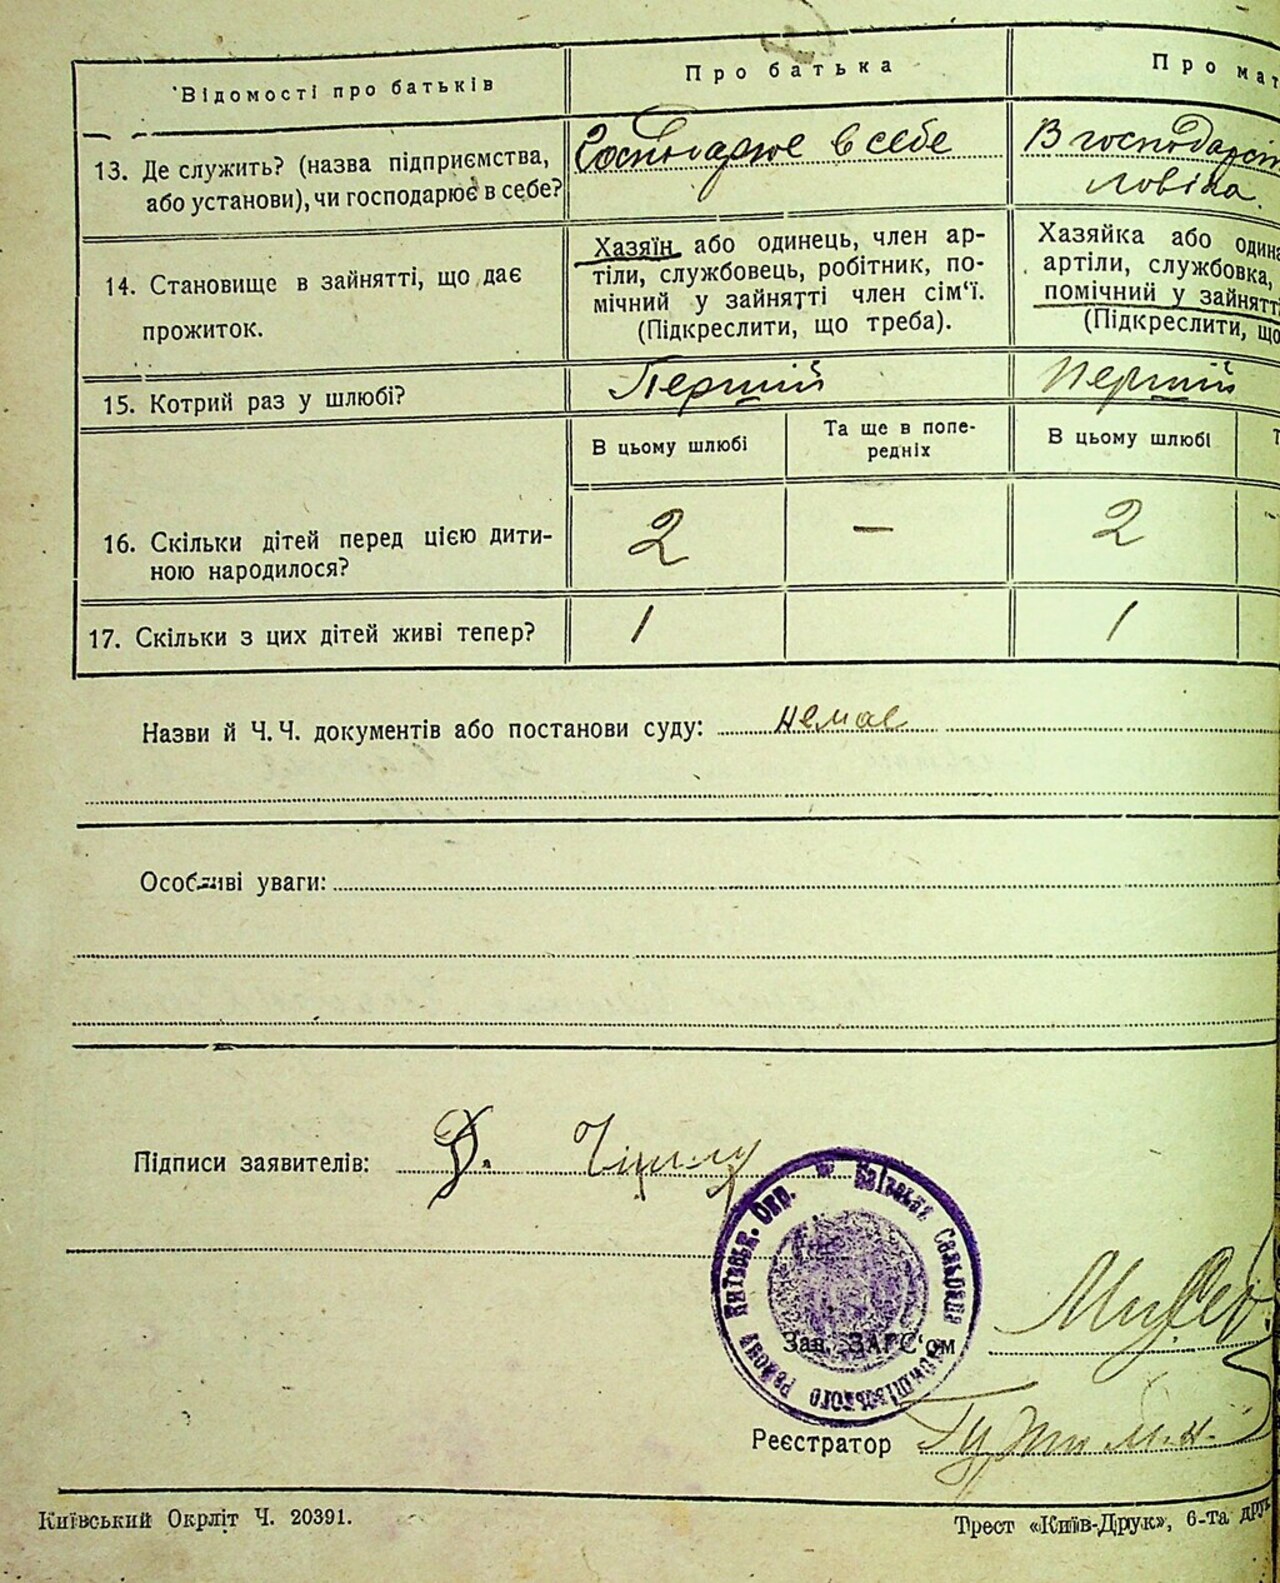 Відомості про батьків
Про батька
Про мат
13. Де служить? (назва підприємства,
або установи), чи господарює в себе?
Господарює в себе
В господарст
ловіка.
14. Становище в зайнятті, що дає
прожиток.
Хазяїн або одинець, член ар-
тіли, службовець, робітник, по-
мічний у зайнятті член сім‘ї.
(Підкреслити, що треба).
Хазяйка або один
артіли, службовка,
помічний у зайнятті
(Підкреслити, що
15. Котрий раз у шлюбі?
Перший
Перший
В цьому шлюбі
Та ще в попе-
редніх
В цьому шлюбі
Т
16. Скільки дітей перед цією дити-
ною народилося?
2
—
2
17. Скільки з цих дітей живі тепер?
1
1
Назви й Ч. Ч. документів або постанови суду: немає
Особливі уваги:
Підписи заявителів: Д.
Київськ. Окр. Сельрада району
Зав. ЗАГС‘ом
Реєстратор
Київський Окрліт Ч. 20391.
Трест «Київ-Друк», 6-та друк